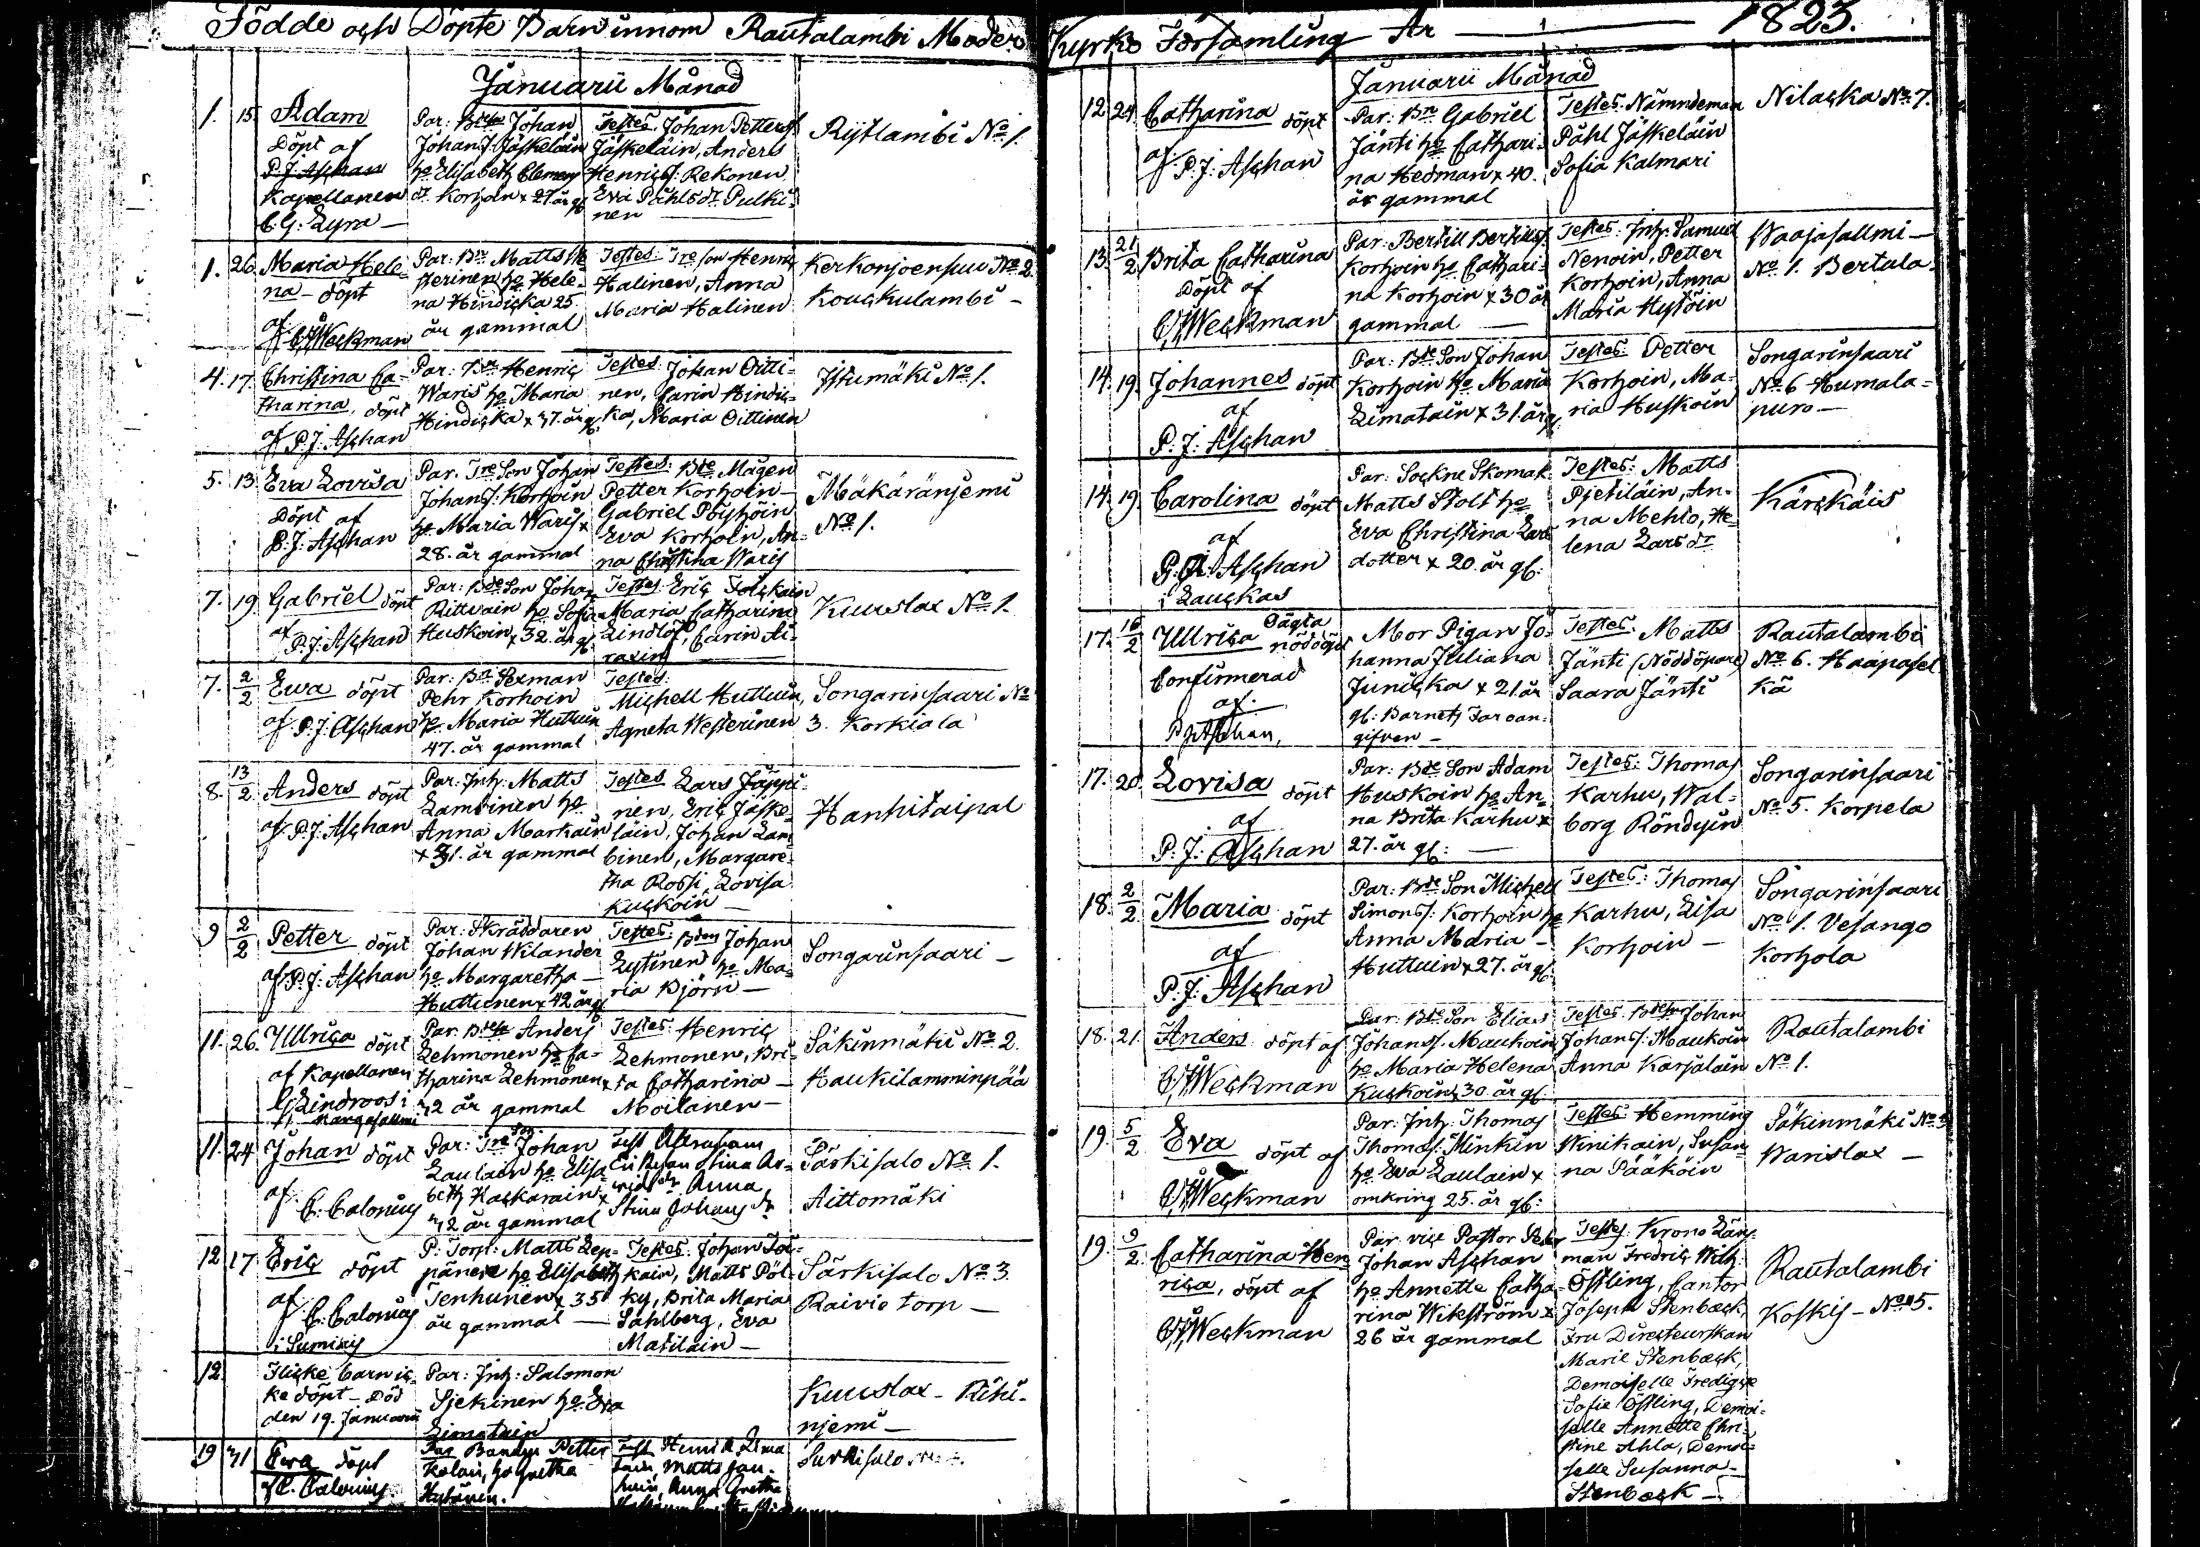 Födde och Döpte Barn innom Rautalambi Moder
Januarii Månad
1. 15. Adam
Döpt af
P. J. Aschan
Kapellanen
C. G. Lyra —
Par: Johan
Johan J: Jäskeläin
ho Elisabeth Clemens
dr Korhoin x 27 år gl
Testes. Johan Petters
Jäskeläin, Anders
Henrics: Rekonen
Eva Påhlsdr Pulki-
nen
Rijtlambi No 1.
1. 26. Maria Hele-
na — döpt
af
Weckman
Par: Bn Matts We
sterinen ho Hele-
na Hindicka 25
år gammal
Testes: Tre son Henric
Halinen, Anna
Maria Halinen
Kerkonjoensuu No 2.
Kouckulambi —
4. 17. Christina Ca-
tharina, döpt
af P. J. Aschan
Par: Bn Henric
Waris ho Maria
Hindicka x 37. år gl.
Testes: Johan Oitti-
nen, Carin Hindic-
ka, Maria Oittinen
Istumäki No 1.
5. 13. Eva Lovisa
Döpt af
P. J. Aschan
Par. Tre Son Johan
Johans: Korhoin
ho Maria Waris x
28. år gammal
Testes: Bde Mågen
Petter Korhoin —
Gabriel Pöyhöin
Eva Korhoin, An-
na Christina Waris
Mäkäräniemi
No 1.
7. 19. Gabriel döpt
af P. J. Aschan
Par: Bde Son Johan
Ritvain ho Sofia
Huskoin, x 32. år gl.
Testes. Eric Tolckain
Maria Catharina
Lindlöf, Carin Ai-
raxin
Kuuslax No 1.
7. 2/2 Ewa döpt
af P. J. Aschan
Par: Bn Sexman
Pehr Korhoin
ho Maria Huttuin
47. år gammal
Testes:
Michell Huttuin,
Agneta Westerinen
Songarinsaari No
3. Korkiala
8. 13/2 Anders döpt
af P. J. Aschan
Par: Inh: Matts
Lambinen ho
Anna Markain
x 31. år gammal
Testes Lars Jäppi-
nen, Eric Jäske-
läin, Johan Lam
binen, Margare-
tha Rossi, Lovisa
Kuckoin —
Hanhitaipal
9 2/2 Petter döpt
af P. J. Aschan
Par: Skräddaren
Johan Wilander
ho Margaretha —
Huttunen x 42 år gl
Testes: Bden Johan
Lytinen ho Ma-
ria Björn —
Songarinsaari —
11. 26. Ullrica döpt
af Kapellanen
Lindroos i
Par: Anders
Lehmonen ho Ca-
tharina Lehmonen x
42 år gammal
Testes: Henric
Lehmonen, Bri-
ta Catharina —
Moilanen —
Säkinmäki No 2.
Haukilamminpää
11. 24 Johan döpt
af
C. Calonius
Par: Tre Son Johan
Laulain ho Elisa-
beth Kackarain x
42 år gammal
Test Abraham
Anna
Stina Johans dr
Särkisalo No 1.
Aittomäki
12 17 Eric döpt
af
C. Calonius
i Sumiais
P. Torp: Matts Lep-
pänen ho Elisabeth
Tenhunen x 35
år gammal —
Testes: Johan Toi-
kain, Matts Pöl-
ky, Brita Maria
Sahlberg, Eva
Matilain —
Särkisalo No 3.
Raivio torp —
12 Flicke barn ic-
ke döpt — Död
den 19. Januarii
Par: Inh: Salomon
Sjekinen ho Eva
Limatain
Kuuslax — Rihi-
njemi —
19 Eva döpt
af C. Calonius.
Par Bonden Petter
ho Gretha
Hytönen.
Matts
Anna Gretha
Särkisalo No
Kyrko Församling År — 1823.
Januarii Månad
12. 24. Catharina döpt
af P. J. Aschan
Par: Bn Gabriel
Jänti ho Cathari-
na Hedman x 40.
år gammal
Testes: Nämndeman
Påhl Jäskeläin
Sofia Kalmari
Nilacka No 7.
13. 21/2 Brita Catharina
Döpt af
Weckman
Par: Bertill Bertills:
Korhoin ho Cathari-
na Korhoin x 30 år
gammal —
Testes: Inh: Samuel
Nenoin, Petter
Korhoin, Anna
Maria Hytöin
Waajasallmi —
No 1. Bertala-
14. 19. Johannes döpt
af
P. J. Aschan
Par: Bde Son Johan
Korhoin ho Maria
Limatain x 31. år gl
Testes: Petter
Korhoin, Ma-
ria Huskoin
Songarinsaari
No 6 Humala-
puro —
14. 19. Carolina döpt
af
P. J. Aschan
i Lauckas
Par: Sockne Skomak
Matts Stolt ho
Eva Christina Lars
dotter x 20. år gl:
Testes: Matts
Pjetiläin, An-
na Mehto, He-
lena Lars dr
Kärckäis
17. 16/2 Ullrica Oägta
nöddöpt
Confirmerad
af.
P. J. Aschan,
Mor Pigan Jo-
hanna Juliana
Junicka x 21. år
gl: Barnets Far oan-
gifven —
Testes: Matts
Jänti (Nöddöpare)
Saara Jänti
Rautalambi
No 6. Haapasel
kä
17. 20. Lovisa döpt
af
P. J. Aschan
Par: Bde Son Adam
Huskoin ho An-
na Brita Karhu x
27. år gl: —
Testes: Thomas
Karhu, Wal-
borg Röndyin
Songarinsaari
No 5. Korpela
18. 2/2 Maria döpt
af
P. J. Aschan
Par: Bde Son Michell
Simons: Korhoin ho
Anna Maria —
Huttuin x 27. år gl.
Testes: Thomas
Karhu, Lisa
Korhoin —
Songarinsaari
No 1. Vesango
Korhola
18. 21. Anders döpt af
Weckman
Par: Bde Son Elias
Johans: Maukoin
ho Maria Helena
Kuckoin x 30. år gl.
Testes: Johan
Johans: Maukoin
Anna Karjalain
Rautalambi
No 1.
19. 5/2 Eva döpt af
Weckman
Par: Inh: Thomas
Thomas: Minkin
ho Eva Laulain x
omkring 25. år gl:
Testes: Hemming
Winikain, Susan-
na Pääköin
Säkinmäki No 3
Warislax —
19. 9/2 Catharina Hen
rica, döpt af
Weckman
Par vice Pastor Petter
Johan Aschan
ho Annette Catha-
rina Wikström x
26 år gammal
Testes. Krono Läns
man Fredric Wilh:
Östling, Cantor
Joseph Stenbæck,
Fru Directeurskan
Marie Stenbæck,
Demoiselle Fredique
Sofie Östling, Demoi-
selle Annette Chri-
stine Ahla, Demoi-
selle Susanna —
Stenbæck —
Rautalambi
Koskis — No 15.